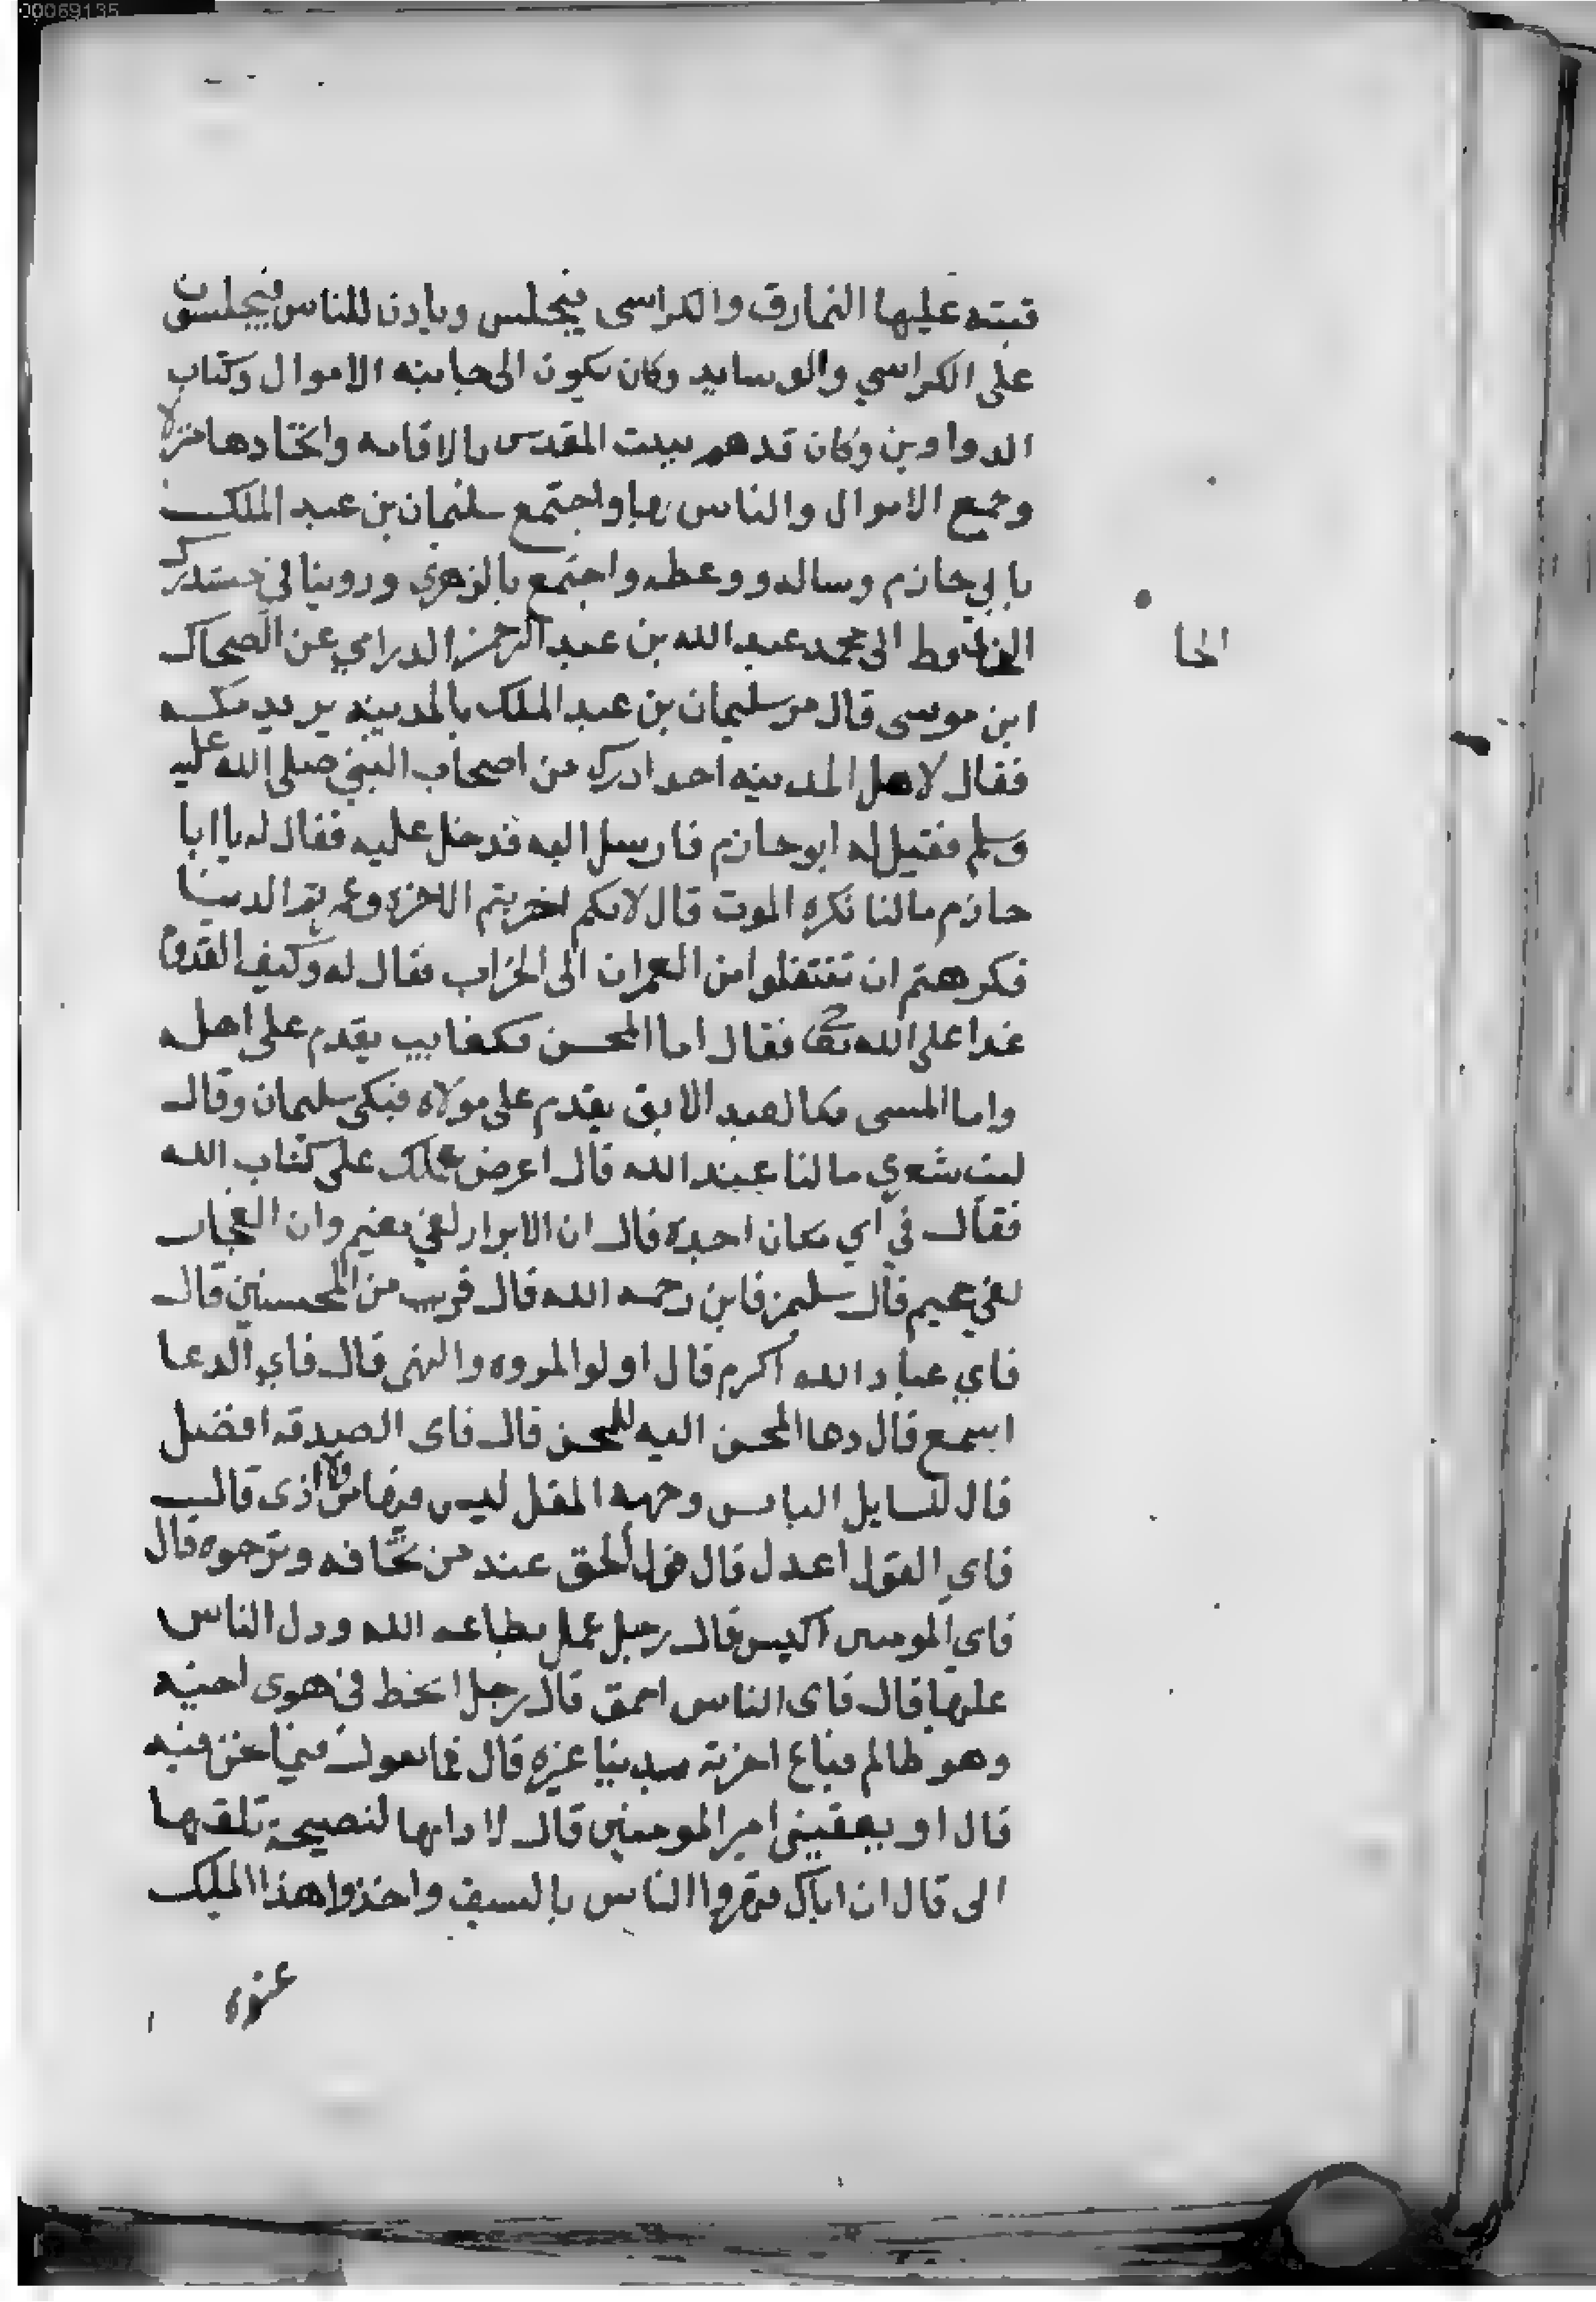 00069135
قبته عليها النمارق والكراسى فيجلس ويادن للناس فيجلسون
على الكراسي والوسايد وكان يكون الى جانبه الاموال وكتاب
الدواوين وكان قد هم ببيت المقدس بالاقامه واتخادها منزلا
وجمع الاموال والناس بها واجتمع سليمان بن عبد الملك
بابي حازم وساله ووعظه واجتمع بالزهري وروينا في مستدرك
الحافظ الى محمد عبد الله بن عبد الرحمن الدرامي عن الصحاك
الحا
ابن موسى قال مر سليمان بن عبد الملك بالمدينه يريد مكه
فقال لاهل المدينه احد ادرك من اصحاب النبي صلى الله عليه
وسلم فقيل له ابو حازم فارسل اليه فدخل عليه فقال له يا ابا
حازم مالنا نكره الموت قال لانكم اخربتم الاخره وعمرتم الدنيا
فكرهتم ان تنتقلوا من العمران الى الخراب فقال له وكيف القدوم
غدا على الله تعالى فقال اما المحسن فكغايب يقدم على اهله
واما المسى فكالعبد الابق يقدم على مولاه فبكى سليمان وقال
ليت شعري مالنا عند الله قال اعرض عملك على كتاب الله
فقال في أي مكان اجده قال ان الابرار لفي نعيم وان الفجار
لفي جحيم قال سليمن فاين رحمه الله قال قريب من المحسنين قال
فاي عباد الله اكرم قال اولوا المروه والنهى قال فاي الدعا
اسمع قال دعا المحسن اليه للمحسن قال فاى الصدقه افضل
قال للسايل البايس وجهد المقل ليس فيها من ولا اذى قال
فاي القول اعدل قال قول الحق عند من تخافه وترجوه قال
فاي المومنين اكيس قال رجل عمل بطاعه الله ودل الناس
عليها قال فاى الناس احمق قال رجل انحط في هوى اخيه
وهو ظالم فباع اخرته بدنيا غيره قال فما تقول فيما نحن فيه
قال او يعفينى امير المومنين قال لا دامها لنصيحة تلقها
الى قال ان اباك قهروا الناس بالسيف واخذوا هذا الملك
عنوه